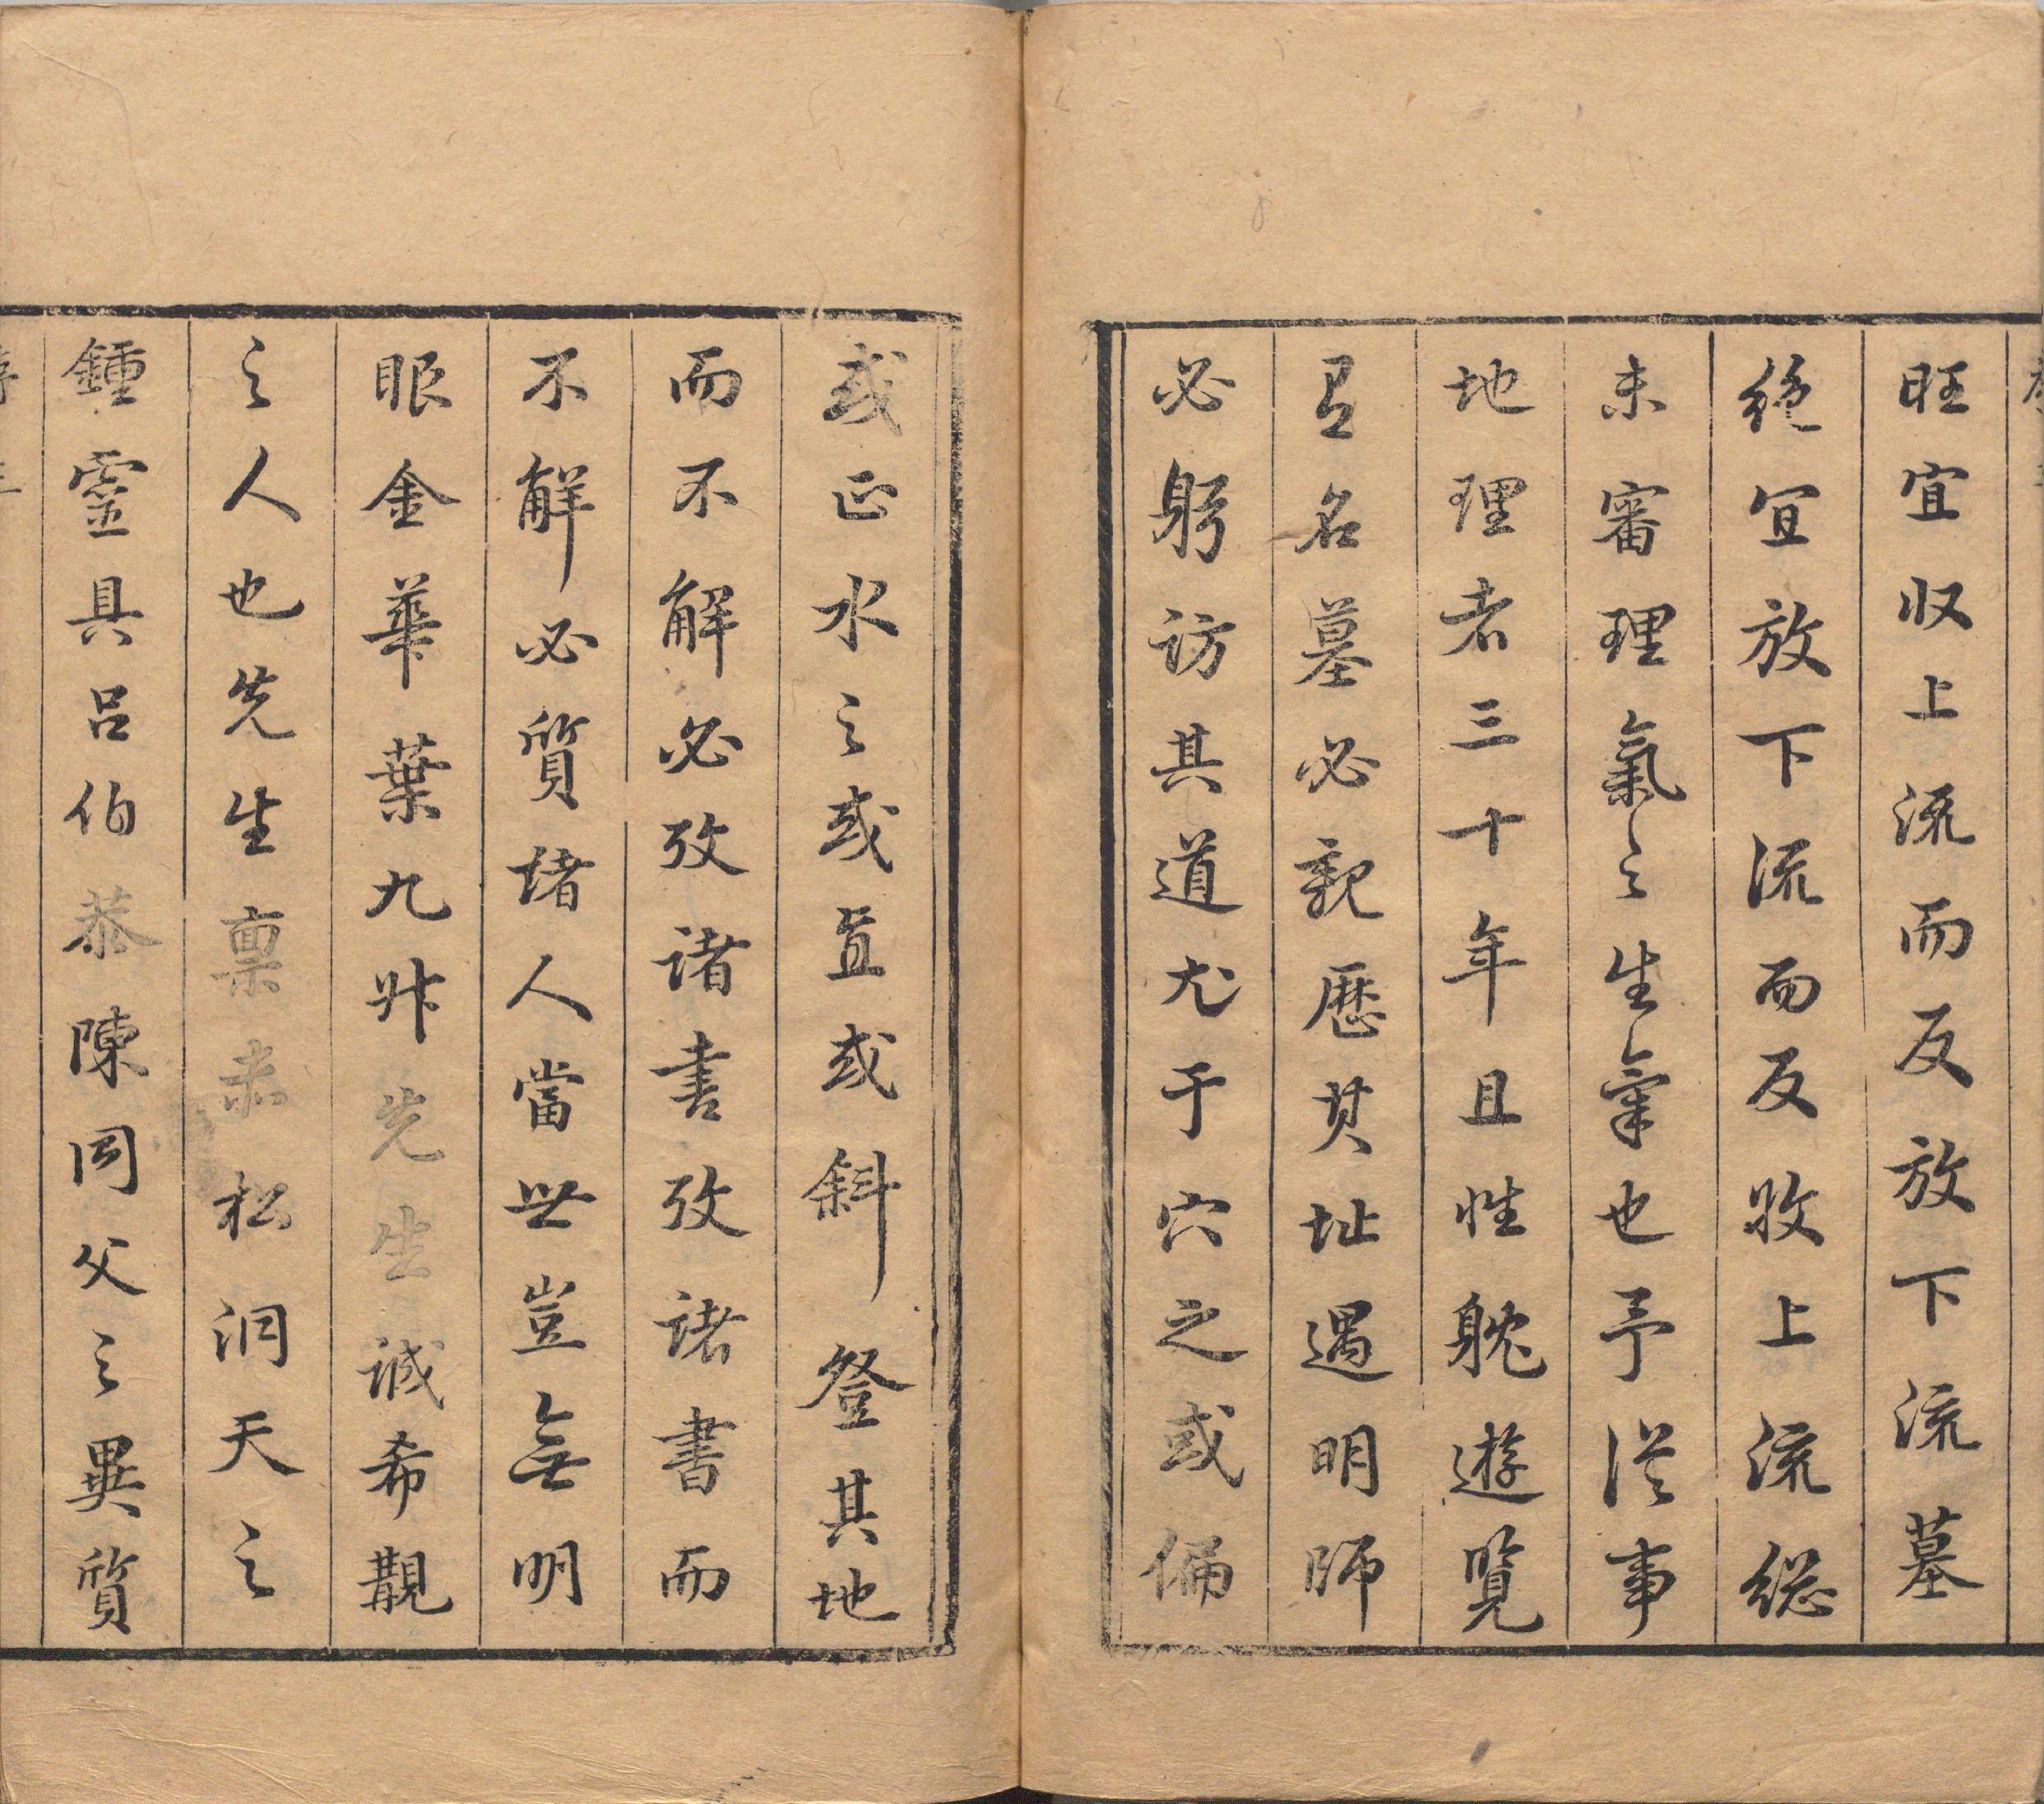 旺宜収上流而反放下流墓
絶宜放下流而反收上流総
未審理氣之生氣也予從事
地理者三十年且性躭遊覽
見名墓必親歷其址遇明師
必躬訪其道尤于穴之或偏
或正水之或直或斜登其地
而不解必攷諸書攷諸書而
不觧必質諸人當世豈無明
眼金華葉九升先生誠希覯
之人也先生禀赤松洞天之
鍾靈具呂伯恭陳同父之異質